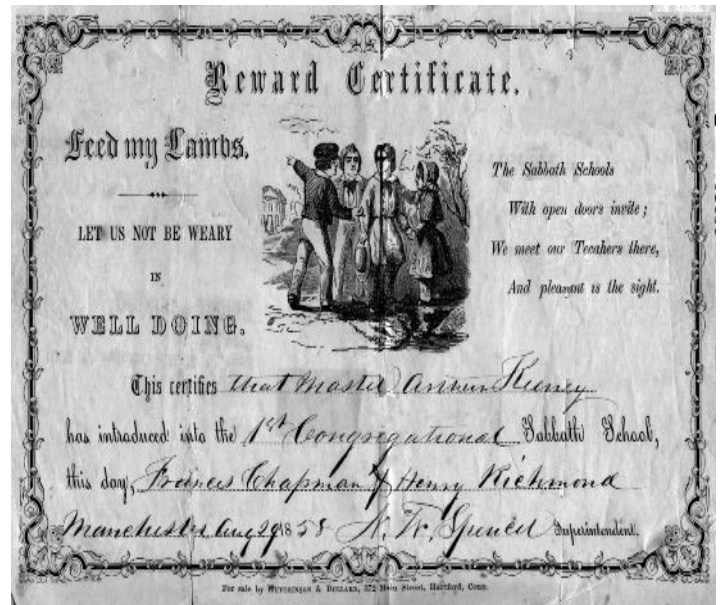 Reward Certificate.
Feed my Lambs.
LET US NOT BE WEARY
IN
WELL DOING.
The Sabbath Schools
With open doors invite;
We meet our Tecahers there,
And pleasant is the sight.
This certifies that Master Keeney
has introduced into the 1st Congregational Sabbath School,
this day, Frances Chapman & Henry Richmond
Manchester Aug 29 1858 N. W. Spencer Superintendent.
For sale by HUTCHINSON & BULLARD, 372 Main Street, Hartford, Conn.